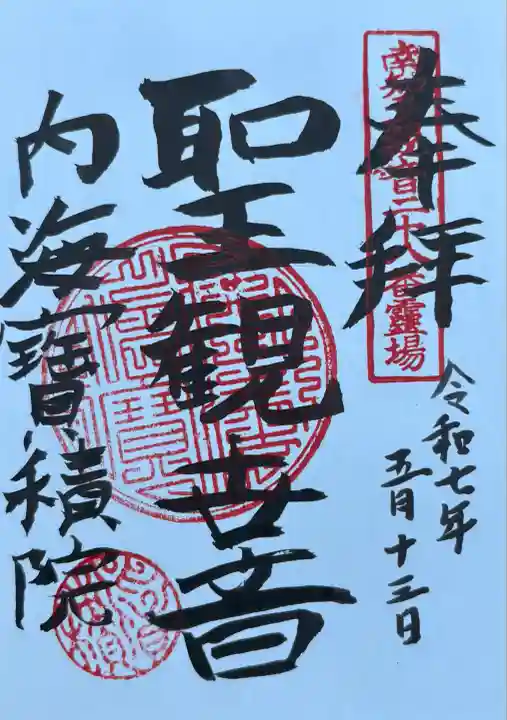 奉拝
南知多観音三十八番霊場
令和七年
五月十三日
聖観世音
内海寳積院